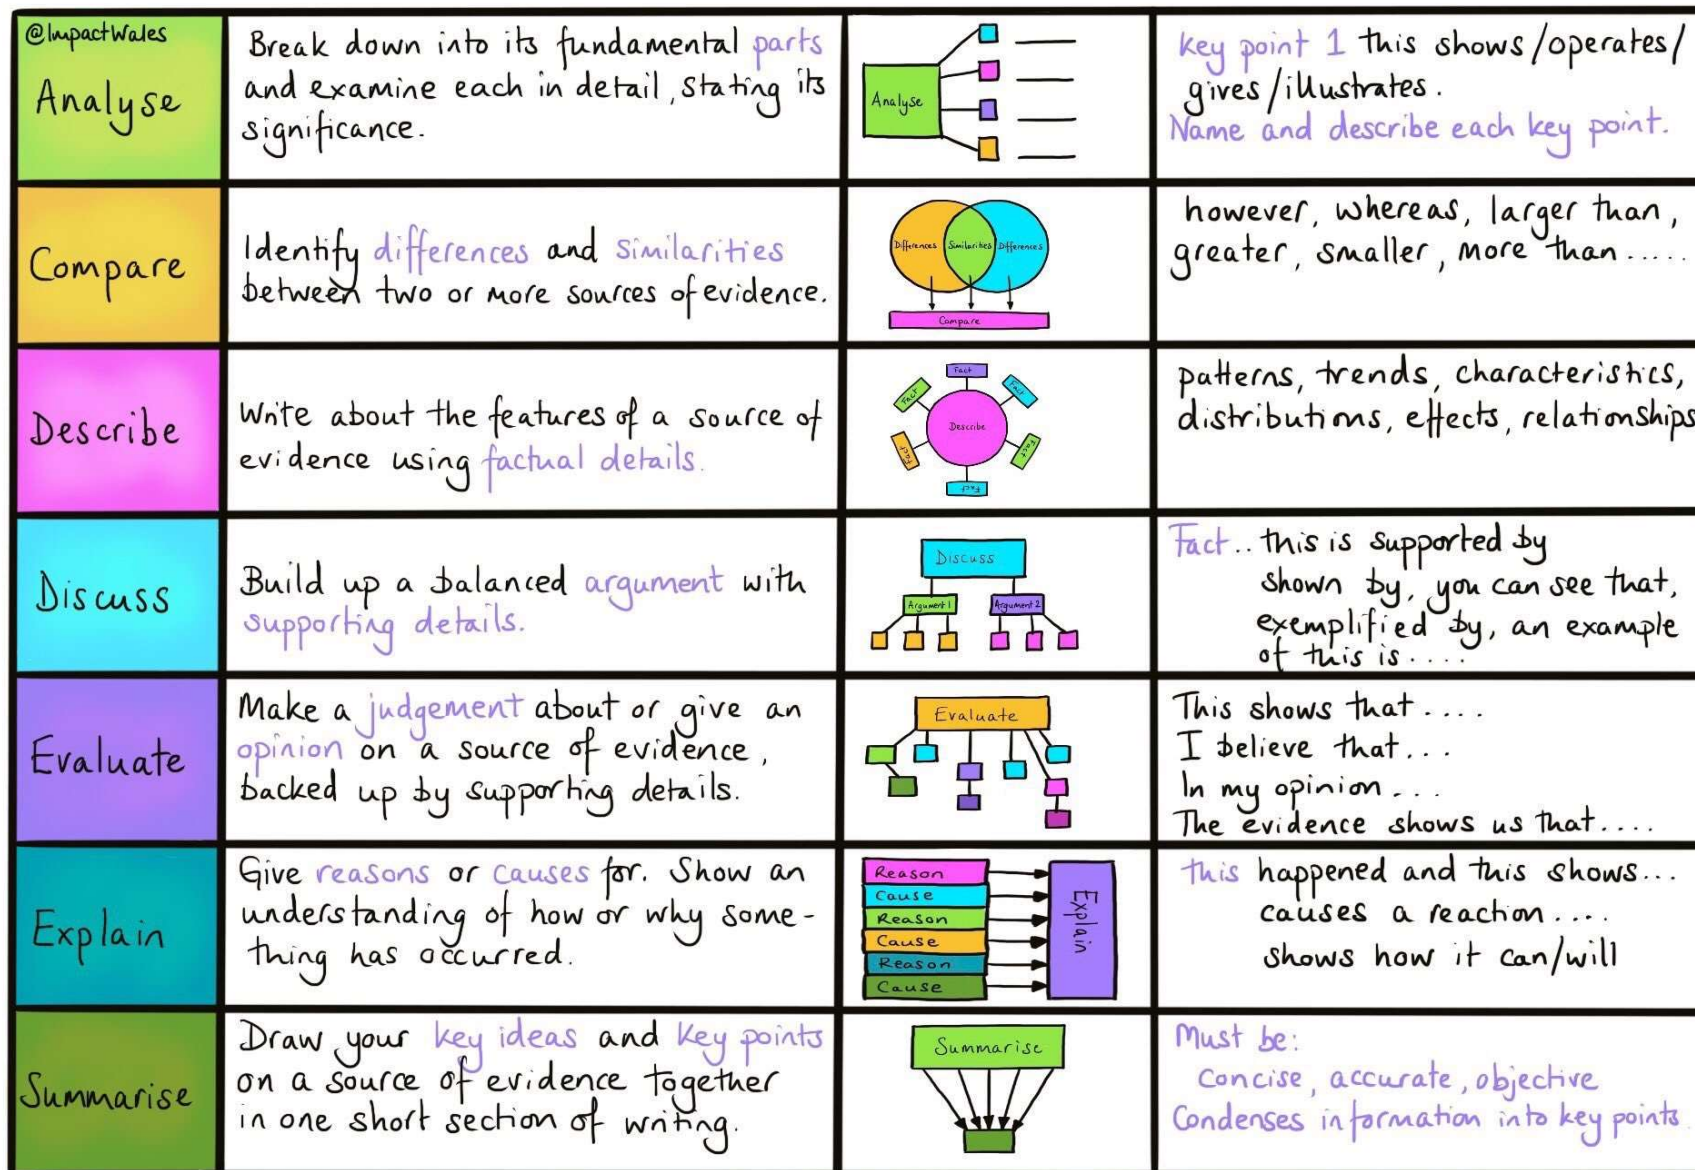 @ImpactWales
Analyse
Break down into its fundamental parts
and examine each in detail, stating its
significance.
Analyse
key point 1 this shows/operates/
gives/illustrates.
Name and describe each key point.
Compare
Identify differences and similarities
between two or more sources of evidence.
Differences Similarities Differences
Compare
however, whereas, larger than,
greater, smaller, more than .....
Describe
Write about the features of a source of
evidence using factual details.
Fact
Fact
Fact
Describe
Fact
Fact
Fact
patterns, trends, characteristics,
distributions, effects, relationships
Discuss
Build up a balanced argument with
supporting details.
Discuss
Argument 1 Argument 2
Fact .. this is supported by
shown by, you can see that,
exemplified by, an example
of this is ....
Evaluate
Make a judgement about or give an
opinion on a source of evidence,
backed up by supporting details.
Evaluate
This shows that ....
I believe that ...
In my opinion ...
The evidence shows us that ....
Explain
Give reasons or causes for. Show an
understanding of how or why some-
thing has occurred.
Reason
Cause
Reason
Cause
Reason
Cause
Explain
this happened and this shows...
causes a reaction ....
shows how it can/will
Summarise
Draw your key ideas and key points
on a source of evidence together
in one short section of writing.
Summarise
Must be:
Concise, accurate, objective
Condenses information into key points